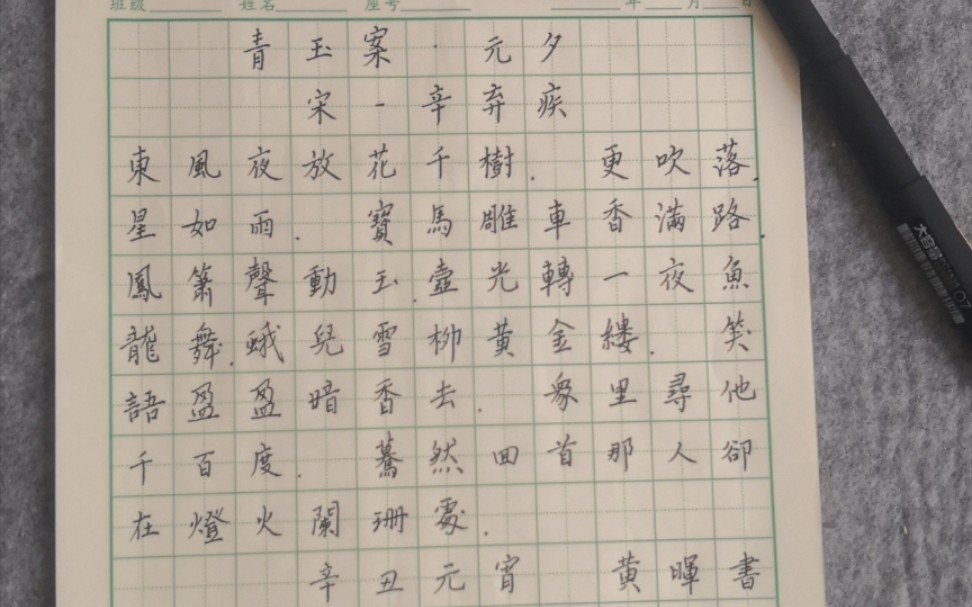 班级 姓名 座号 年 月 日
青玉案·元夕
宋一辛弃疾
東風夜放花千樹.更吹落.
星如雨.寶馬雕車香滿路.
鳳簫聲動玉.壺光轉一夜魚
龍舞.蛾兒雪柳黃金縷.笑
語盈盈暗香去.眾里尋他
千百度.驀然回首那人卻
在燈火闌珊處.
辛丑元宵 黃暉書
大容量